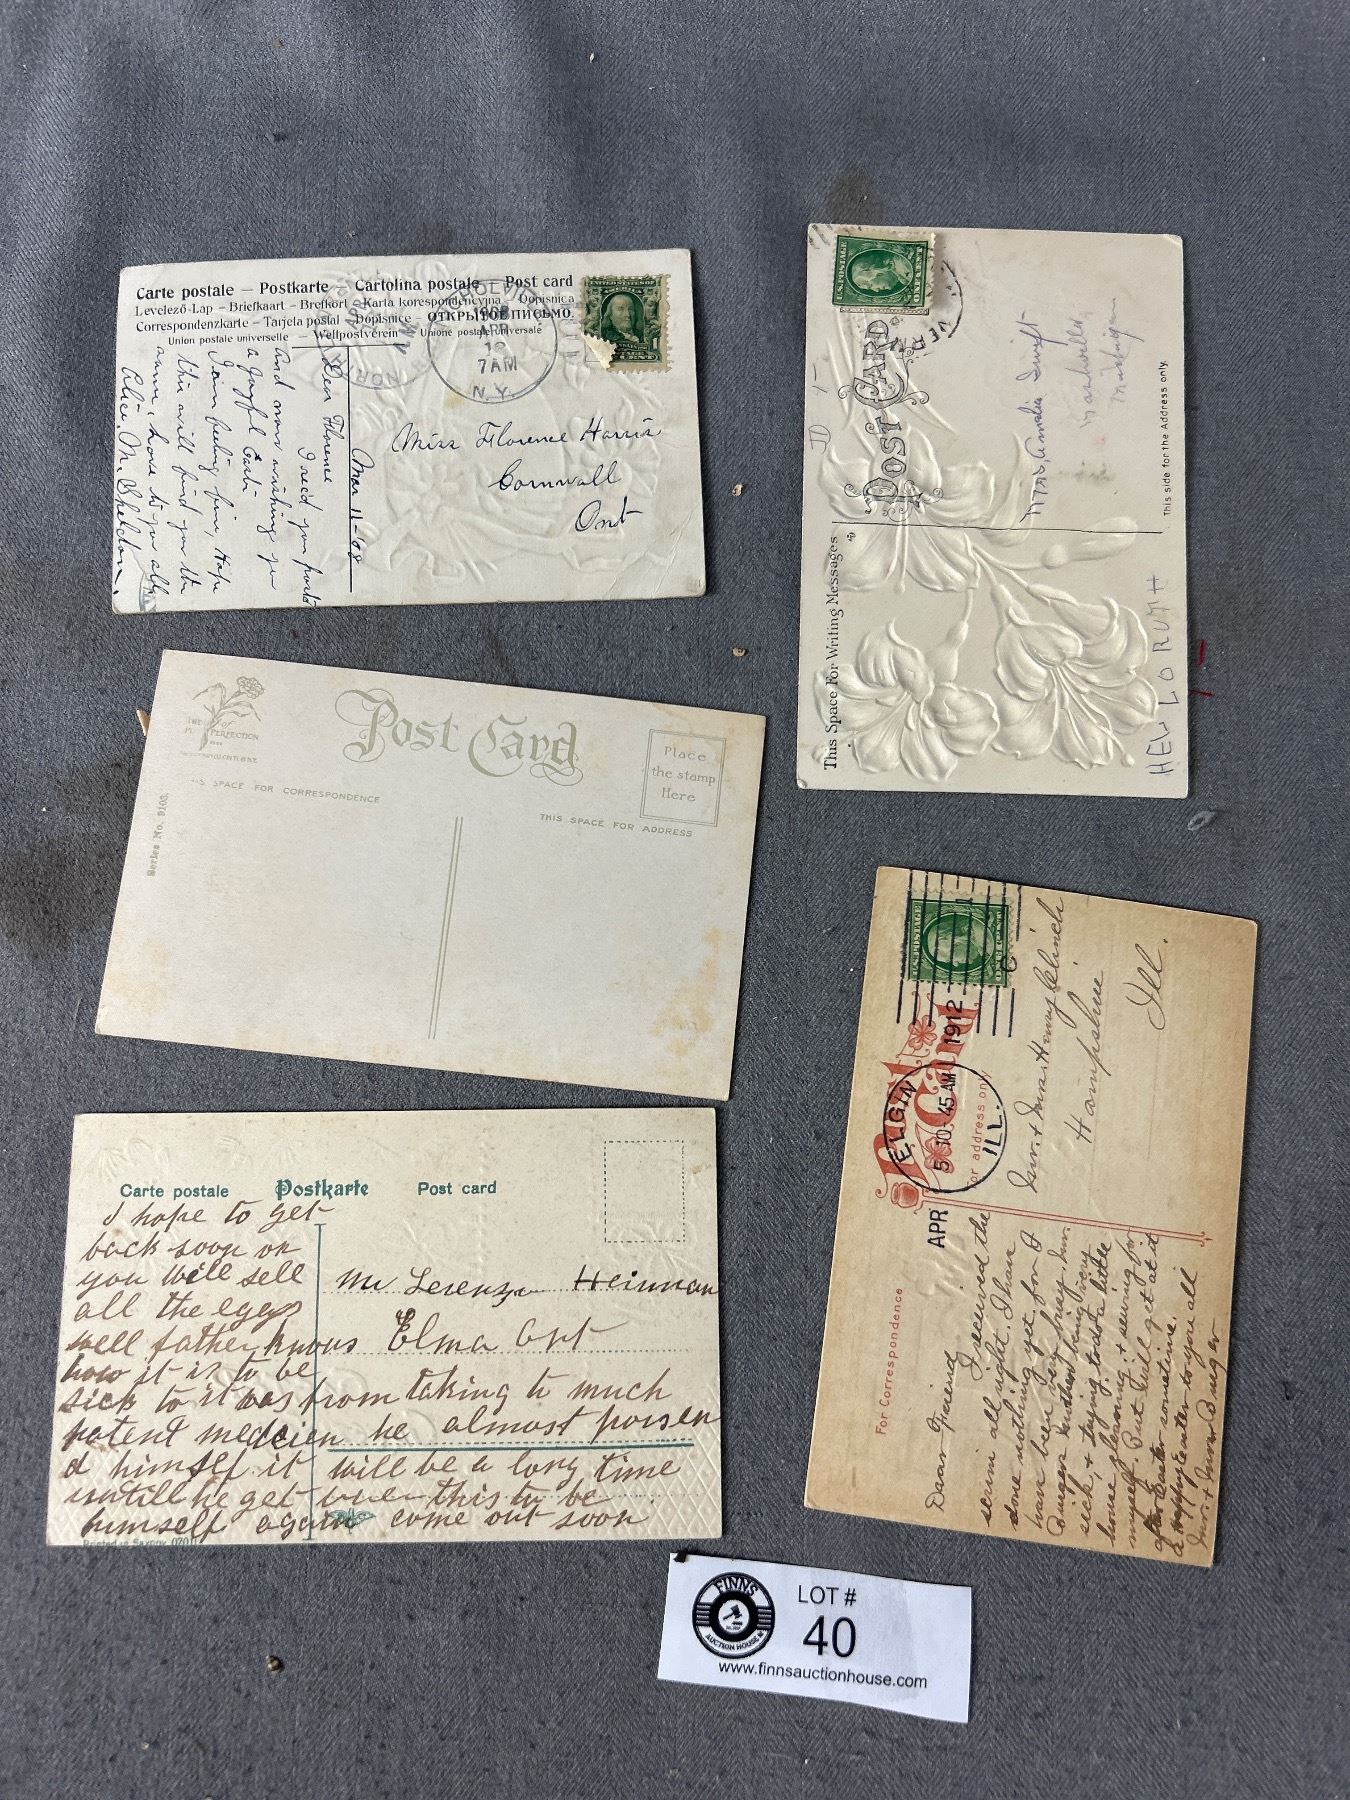 Carte postale – Postkarte – Cartolina postale – Post card
Levelező-Lap – Briefkaart – Brefkort – Karta korespondencyjna – Dopisnica
Correspondenzkarte – Tarjeta postal – Dopisnice – ОТКРЫТОЕ ПИСЬМО.
Union postale universelle – Weltpostverein – Unione postale universale
APR
7AM
N.Y.
Mar 11-'08
Dear Florence
I rec'd your postal
and now wishing you
a Joyful Easter
I am feeling fine, Hope
this will find you the
same, love to you all
Alice. M. Sheldon.
Miss Florence Harris
Cornwall
Ont
U.S. POSTAGE
ONE CENT
POST CARD
This Space For Writing Messages
This side for the Address only.
Amelia Swift
Michigan
HEW LO RUTH
THE
of
PERFECTION
Post Card
Place
the stamp
Here
SPACE FOR CORRESPONDENCE
THIS SPACE FOR ADDRESS
Series No. 9103.
Carte postale Postkarte Post card
I hope to get
back soon or
you will sell
all the eggs
well father knows
how it is to be
sick to it was from taking to much
patent medcien he almost poisen
d himself it will be a long time
untill he get over this to be
himself again come out soon
Mr Lorenzo Heinman
Elma Ont
Printed in Saxony
U.S. POSTAGE
Post Card
For address only
For Correspondence
ELGIN
ILL.
APR 5 10-45AM 1912
Mr. & Mrs. Henry Clinch
Hampshire
Ill.
Dear Friend
I received the
serum all right. I have
done nothing yet. for I
have been very busy. Mr.
Binger brother being very
sick, & trying to do a little
house cleaning & sewing for
myself. But will get at it
after Easter sometime.
a happy Easter to you all
Mr. & Mrs. Binger
FINNS
AUCTION HOUSE
LOT #
40
www.finnsauctionhouse.com